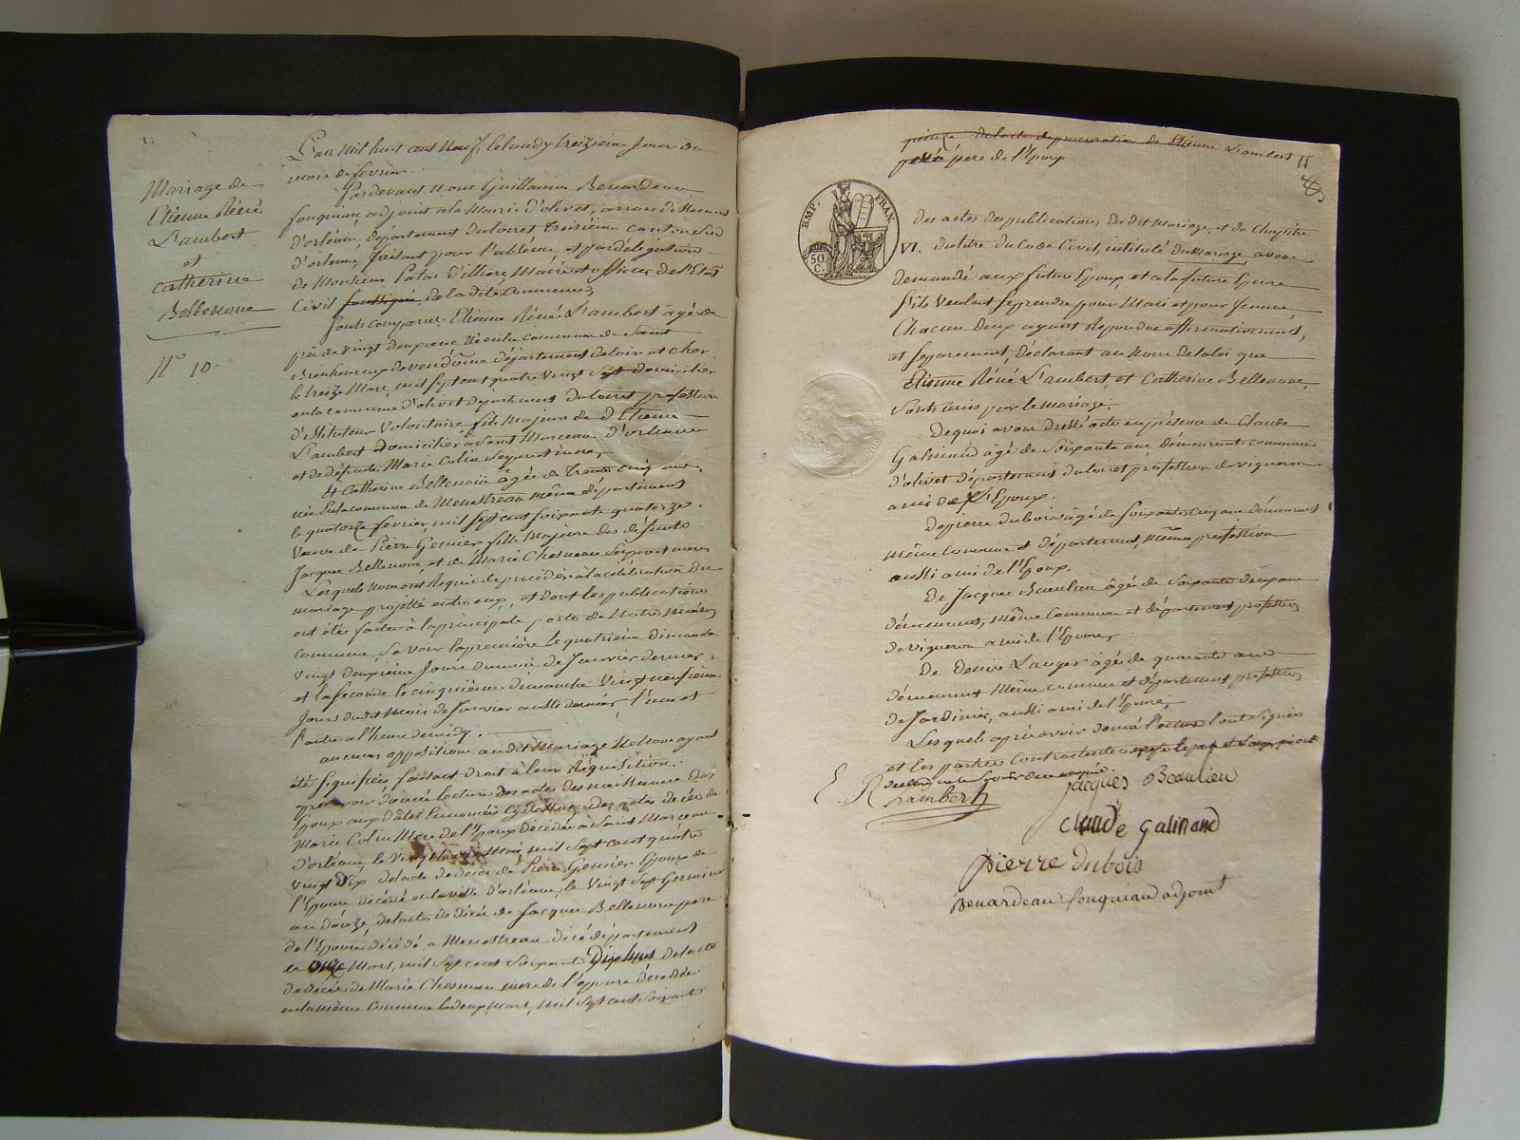 Mariage de
Etienne Réné
Lambert
et
Catherine
Bellenoue
N° 10
L'an Mil huit cent Neuf, le lundy treizieme Jour du
mois de fevrier
Pardevant Nous Guillaume Benardeau
fouquiau, adjoint a la Mairie d'olivet, arrondissement
d'orléans, Département du loiret troisieme canton sud
d'orleans, faisant pour l'absence, et par délégation
de Monsieur Maire et officier de l'Etat
Civil soussigné de la dite Commune,
Sont comparus Etienne Réné Lambert âgé de
près de vingt deux ans Né en la commune de Saint
de vendôme département de loir et cher
le treize Mars, mil sept cent quatre vingt sept domicilier
en la commune d'olivet département du loiret profession
d'instituteur Volontaire fils majeur de d'Etienne
Lambert domicilier à Saint Marceau d'orleans
et de défunte Marie Colin ses pere et mere,
Et Catherine Bellenoue âgée de trente cinq ans,
née en la commune de Menestreau même département
le quatorze fevrier, mil sept cent soixante quatorze.
Veuve de Pierre Genier fille Majeure des défunts
Jacques Bellenoue, et de Marie Chesneau ses pere et mere
Lesquels nous ont Requis de procéder à la célébration du
mariage projetté entre eux, et dont les publications
ont étés faites à la principale porte de Notre Maison
commune, Savoir la premiere le quatrieme dimanche
vingt deuxieme Jour du mois de Janvier dernier,
et la seconde le cinquieme dimanche Vingt neufieme
Jour du dit Mois de Janvier aussi dernier, l'une et
l'autre a l'heure de midy.
aucune opposition audit Mariage Ne Nous ayant
été signifiée faisant droit à leur Réquisition.
après avoir donné lecture des actes de naissance des
Epoux aux dates de l'acte de décès de
Marie Colin Mere de l'Epoux décédée à Saint Marceau
d'orléans, le Vingt Mai, mil sept cent quatre
vingt Dix de l'acte de décès de Pierre Genier Epoux de
l'Epouse décédé en la ville d'orléans, le Vingt sept Germinal
an douze, de l'acte de décès de Jacques Bellenoue pere
de l'Epouse décédé a Menestreau département
le onze Mars, mil sept cent soixante Dix huit de l'acte
de décès de Marie Chesneau mere de l'épouse décédée
en la même Commune le deux Mars, mil sept cent soixante
quinze de l'acte de procuration de Etienne Lambert
pere de l'Epoux
11
EMP. FRAN.
50 C.
des actes des publications du dit Mariage, et du Chapitre
VI. du titre du Code Civil, intitulé du Mariage, avons
demandé aux futurs Epoux et a la future Epouse
s'ils veulent se prendre pour Mari et pour femme,
Chacun deux ayant répondu affirmativement,
et séparement, déclarant au Nom de la loi que
Etienne Réné Lambert et Catherine Bellenoue,
Sont unis par le mariage.
De quoi avons dressé acte en présence de Claude
Galinand âgé de soixante ans demeurant commune
d'olivet département du loiret profession de vigneron
ami de l'Epoux.
De pierre dubois âgé de soixante cinq ans demeurant
même Commune et département, même profession
aussi ami de l'Epoux.
De Jacques Beaulieu âgé de soixante deux ans
demeurant, même Commune et département profession
de vigneron ami de l'Epouse,
De Denis Lauger âgé de quarante ans
demeurant même commune et département profession
de Jardinier, aussi ami de l'Epouse,
Lesquels après avoir donné lecture l'ont signés
et les parties Contractantes
E. R Lambert
jacques Beaulieu
claude galinand
pierre dubois
Benardeau fouquiau adjoint